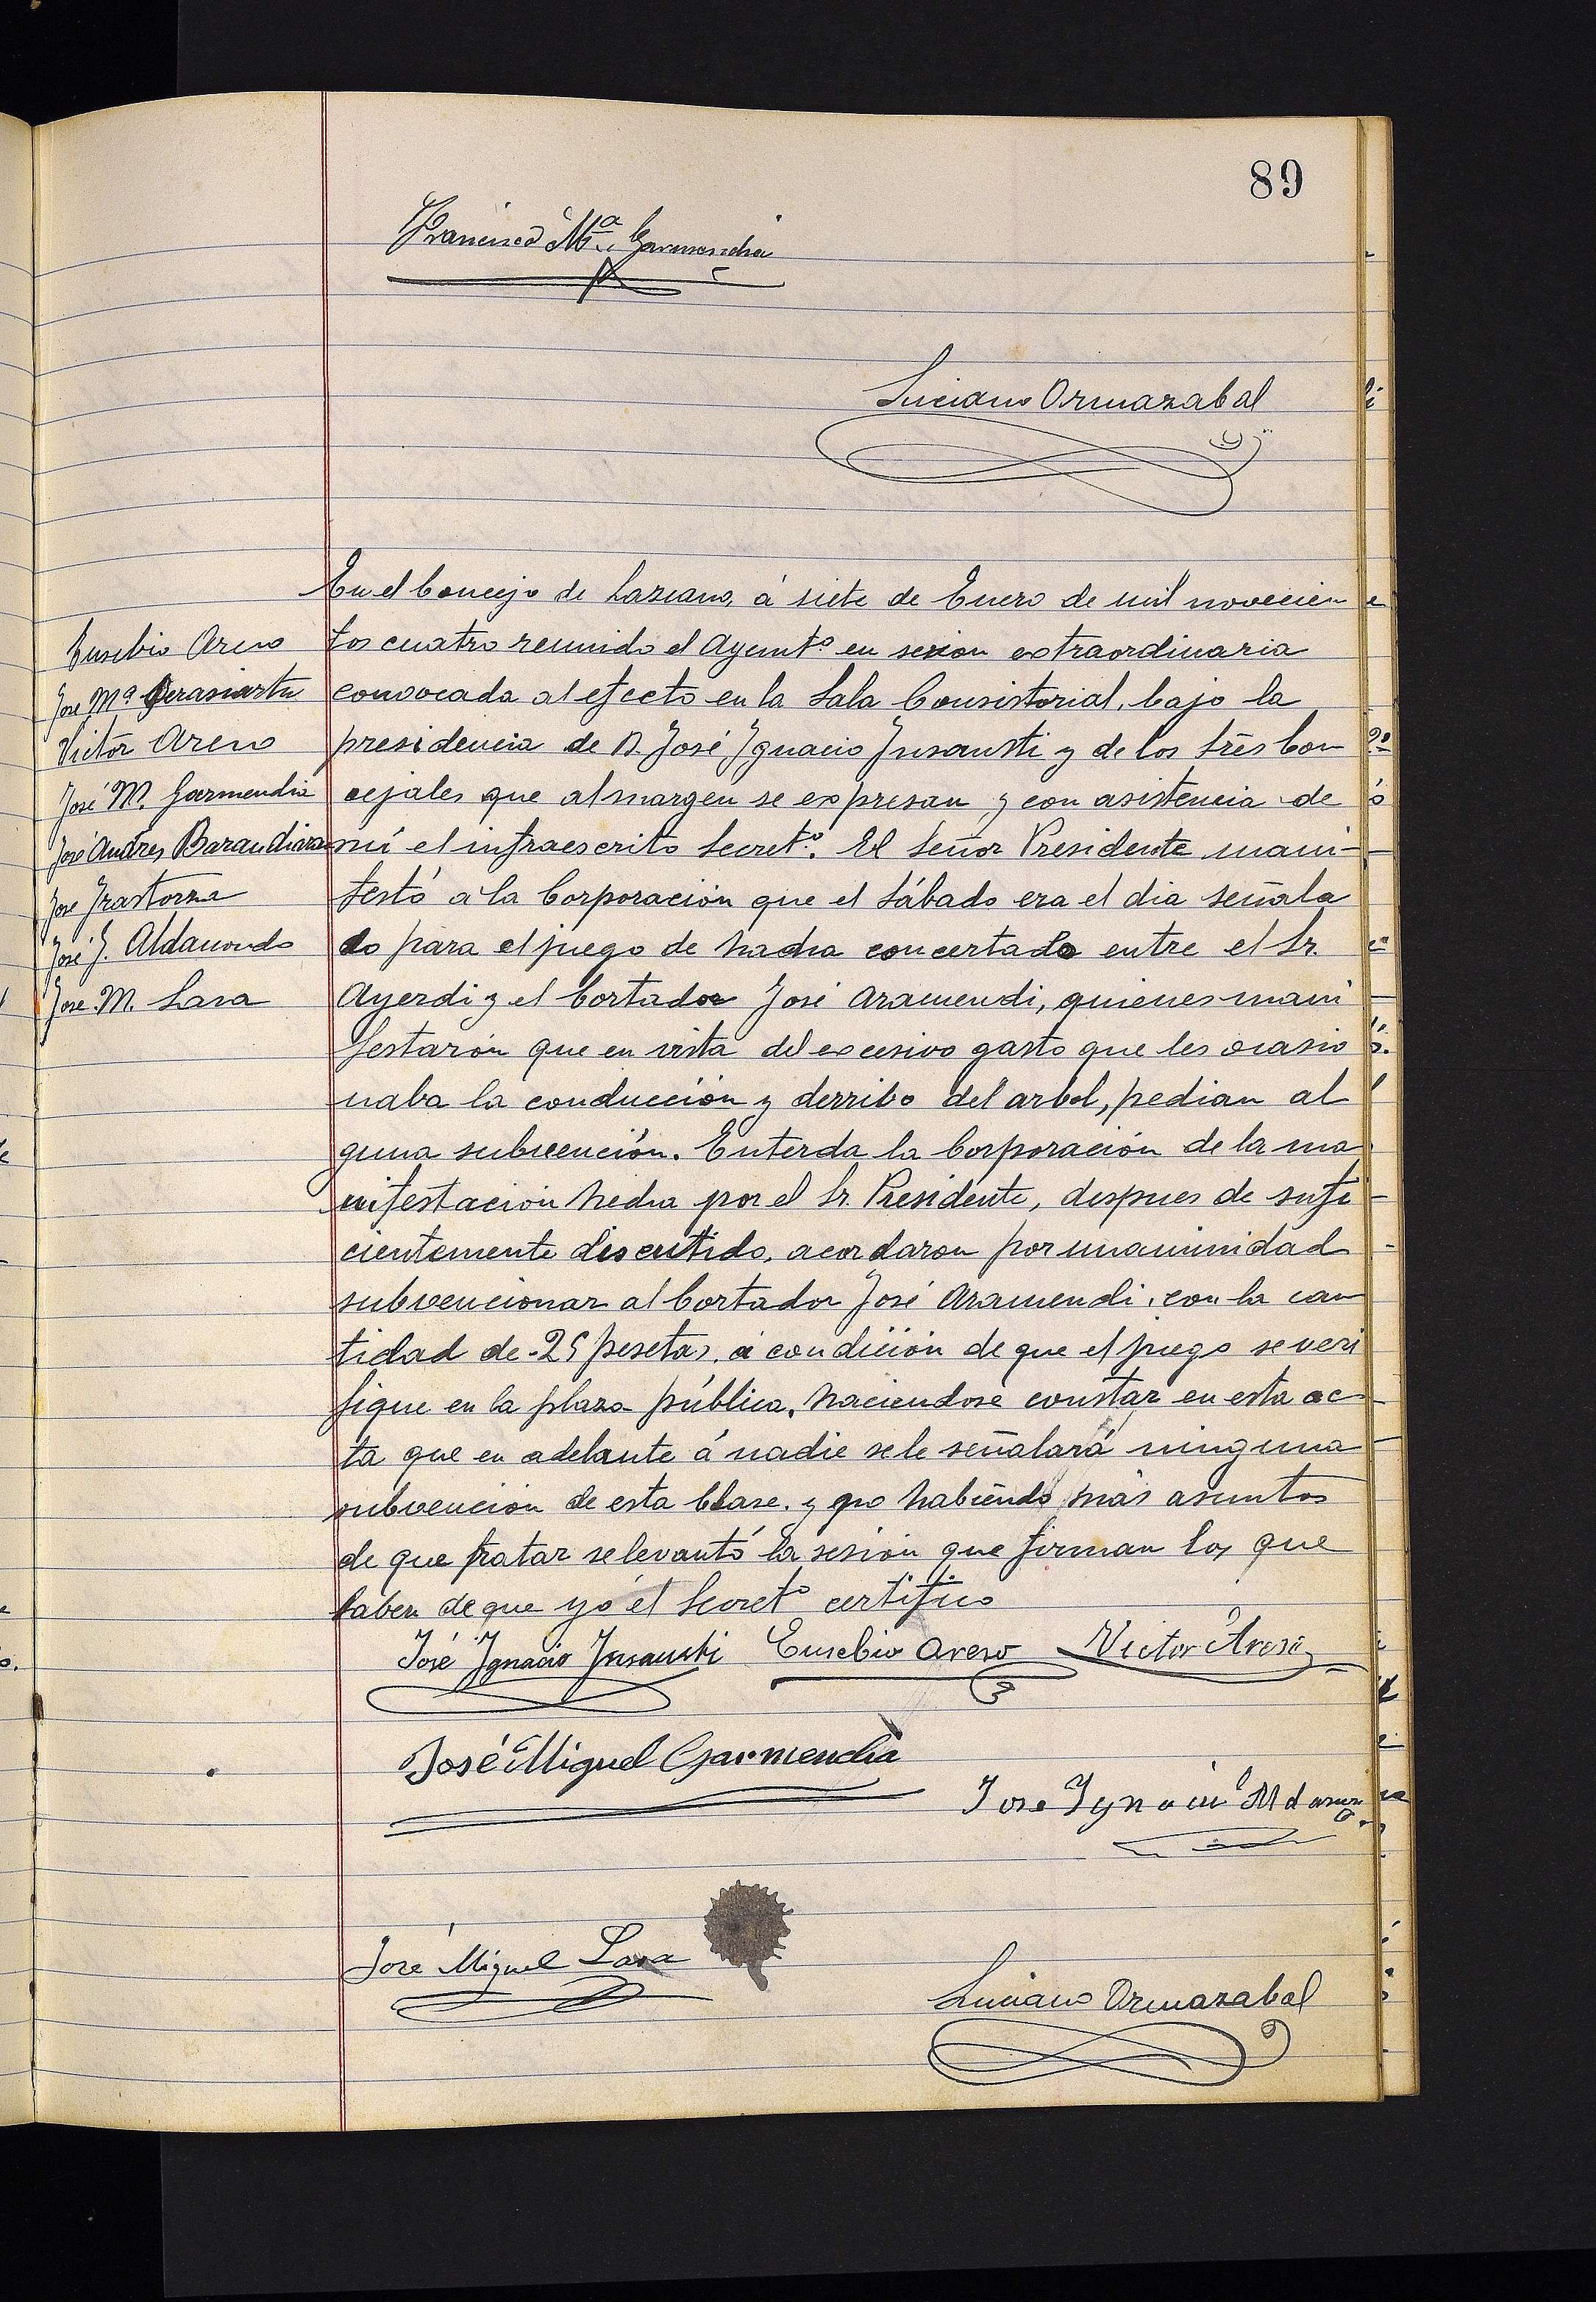 89
Francisco Mª. Garmendia
Luciano Ormazabal
Eusebio Areso
José Mª
Victor Areso
José M. Garmendia
José Andres Barandiaran
José Irastorza
José I. Aldasoro
José M. Lasa
En el Concejo de Lazcano, á siete de Enero de mil novecien
tos cuatro reunido el Ayunt.º en sesion extraordinaria
convocada al efecto en la Sala Consistorial, bajo la
presidencia de D. José Ygnacio Insausti y de los Srēs Con
cejales que al margen se expresan y con asistencia de
mí el infraescrito Secret.º. El Señor Presidente mani-
festó a la Corporación que el Sábado era el dia señala
do para el juego de hacha concertado entre el Sr.
Ayerdi y el Cortador José Aramendi, quienes mani
festarón que en vista del excesivo gasto que les ocasio
naba la conducción y derribo del arbol, pedian al
guna subvención. Enterda la Corporación de la ma
nifestación hecha por el Sr. Presidente, despues de sufi
cientemente discutido, acordaron por unanimidad
subvencionar al Cortador José Aramendi, con la can
tidad de 25 pesetas, a condición de que el juego se veri
fique en la plaza pública, haciendose constar en esta ac
ta que en adelante á nadie se le señalará ninguna
subvencion de esta Clase. y no habiendo más asuntos
de que tratar se levantó la sesión que firman los que
saben de que yo el Secret.º certifico
José Ygnacio Insausti Eusebio Areso Victor Areso
José Miguel Garmendia
Jose Ygnacio
José Miguel Lasa
Luciano Ormazabal